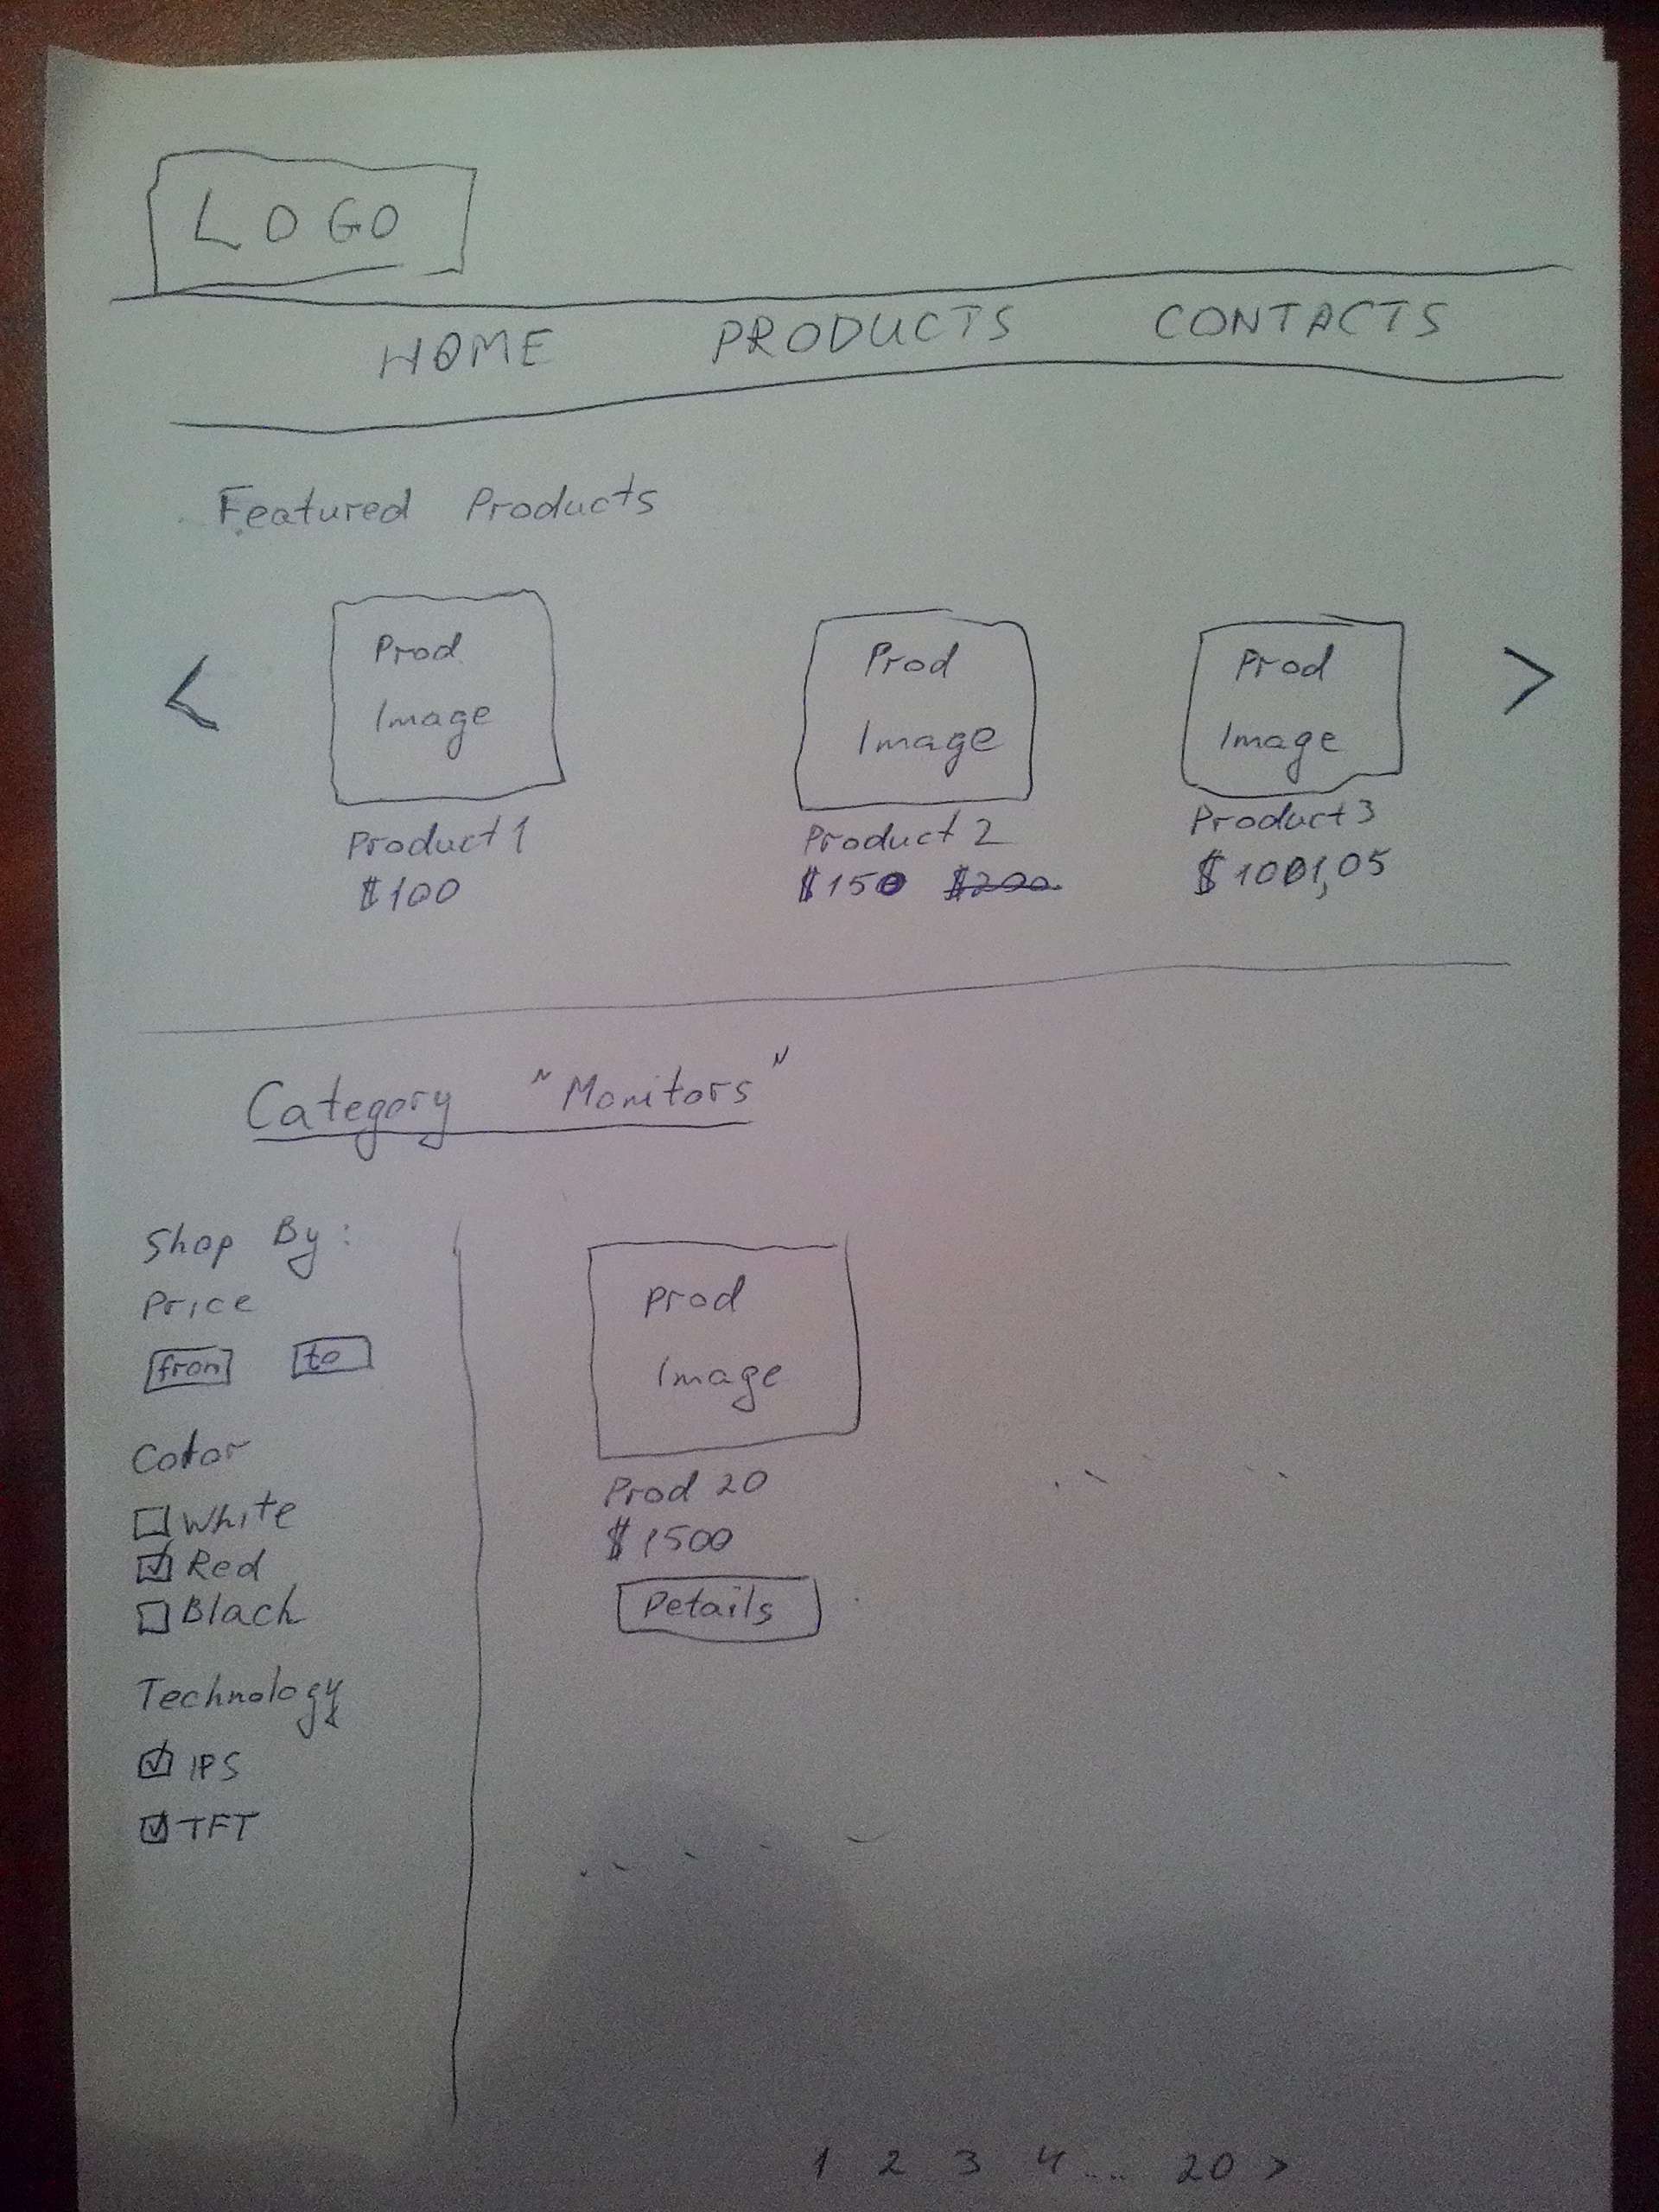 LOGO
HOME PRODUCTS CONTACTS
Featured Products
< Prod Image Prod Image Prod Image >
Product 1 Product 2 Product 3
$100 $150 $200 $1001,05
Category "Monitors"
Shop By:
Price
from to
Color
White
Red
Black
Technology
IPS
TFT
Prod
Image
Prod 20
$1500
Details
1 2 3 4 .... 20 >